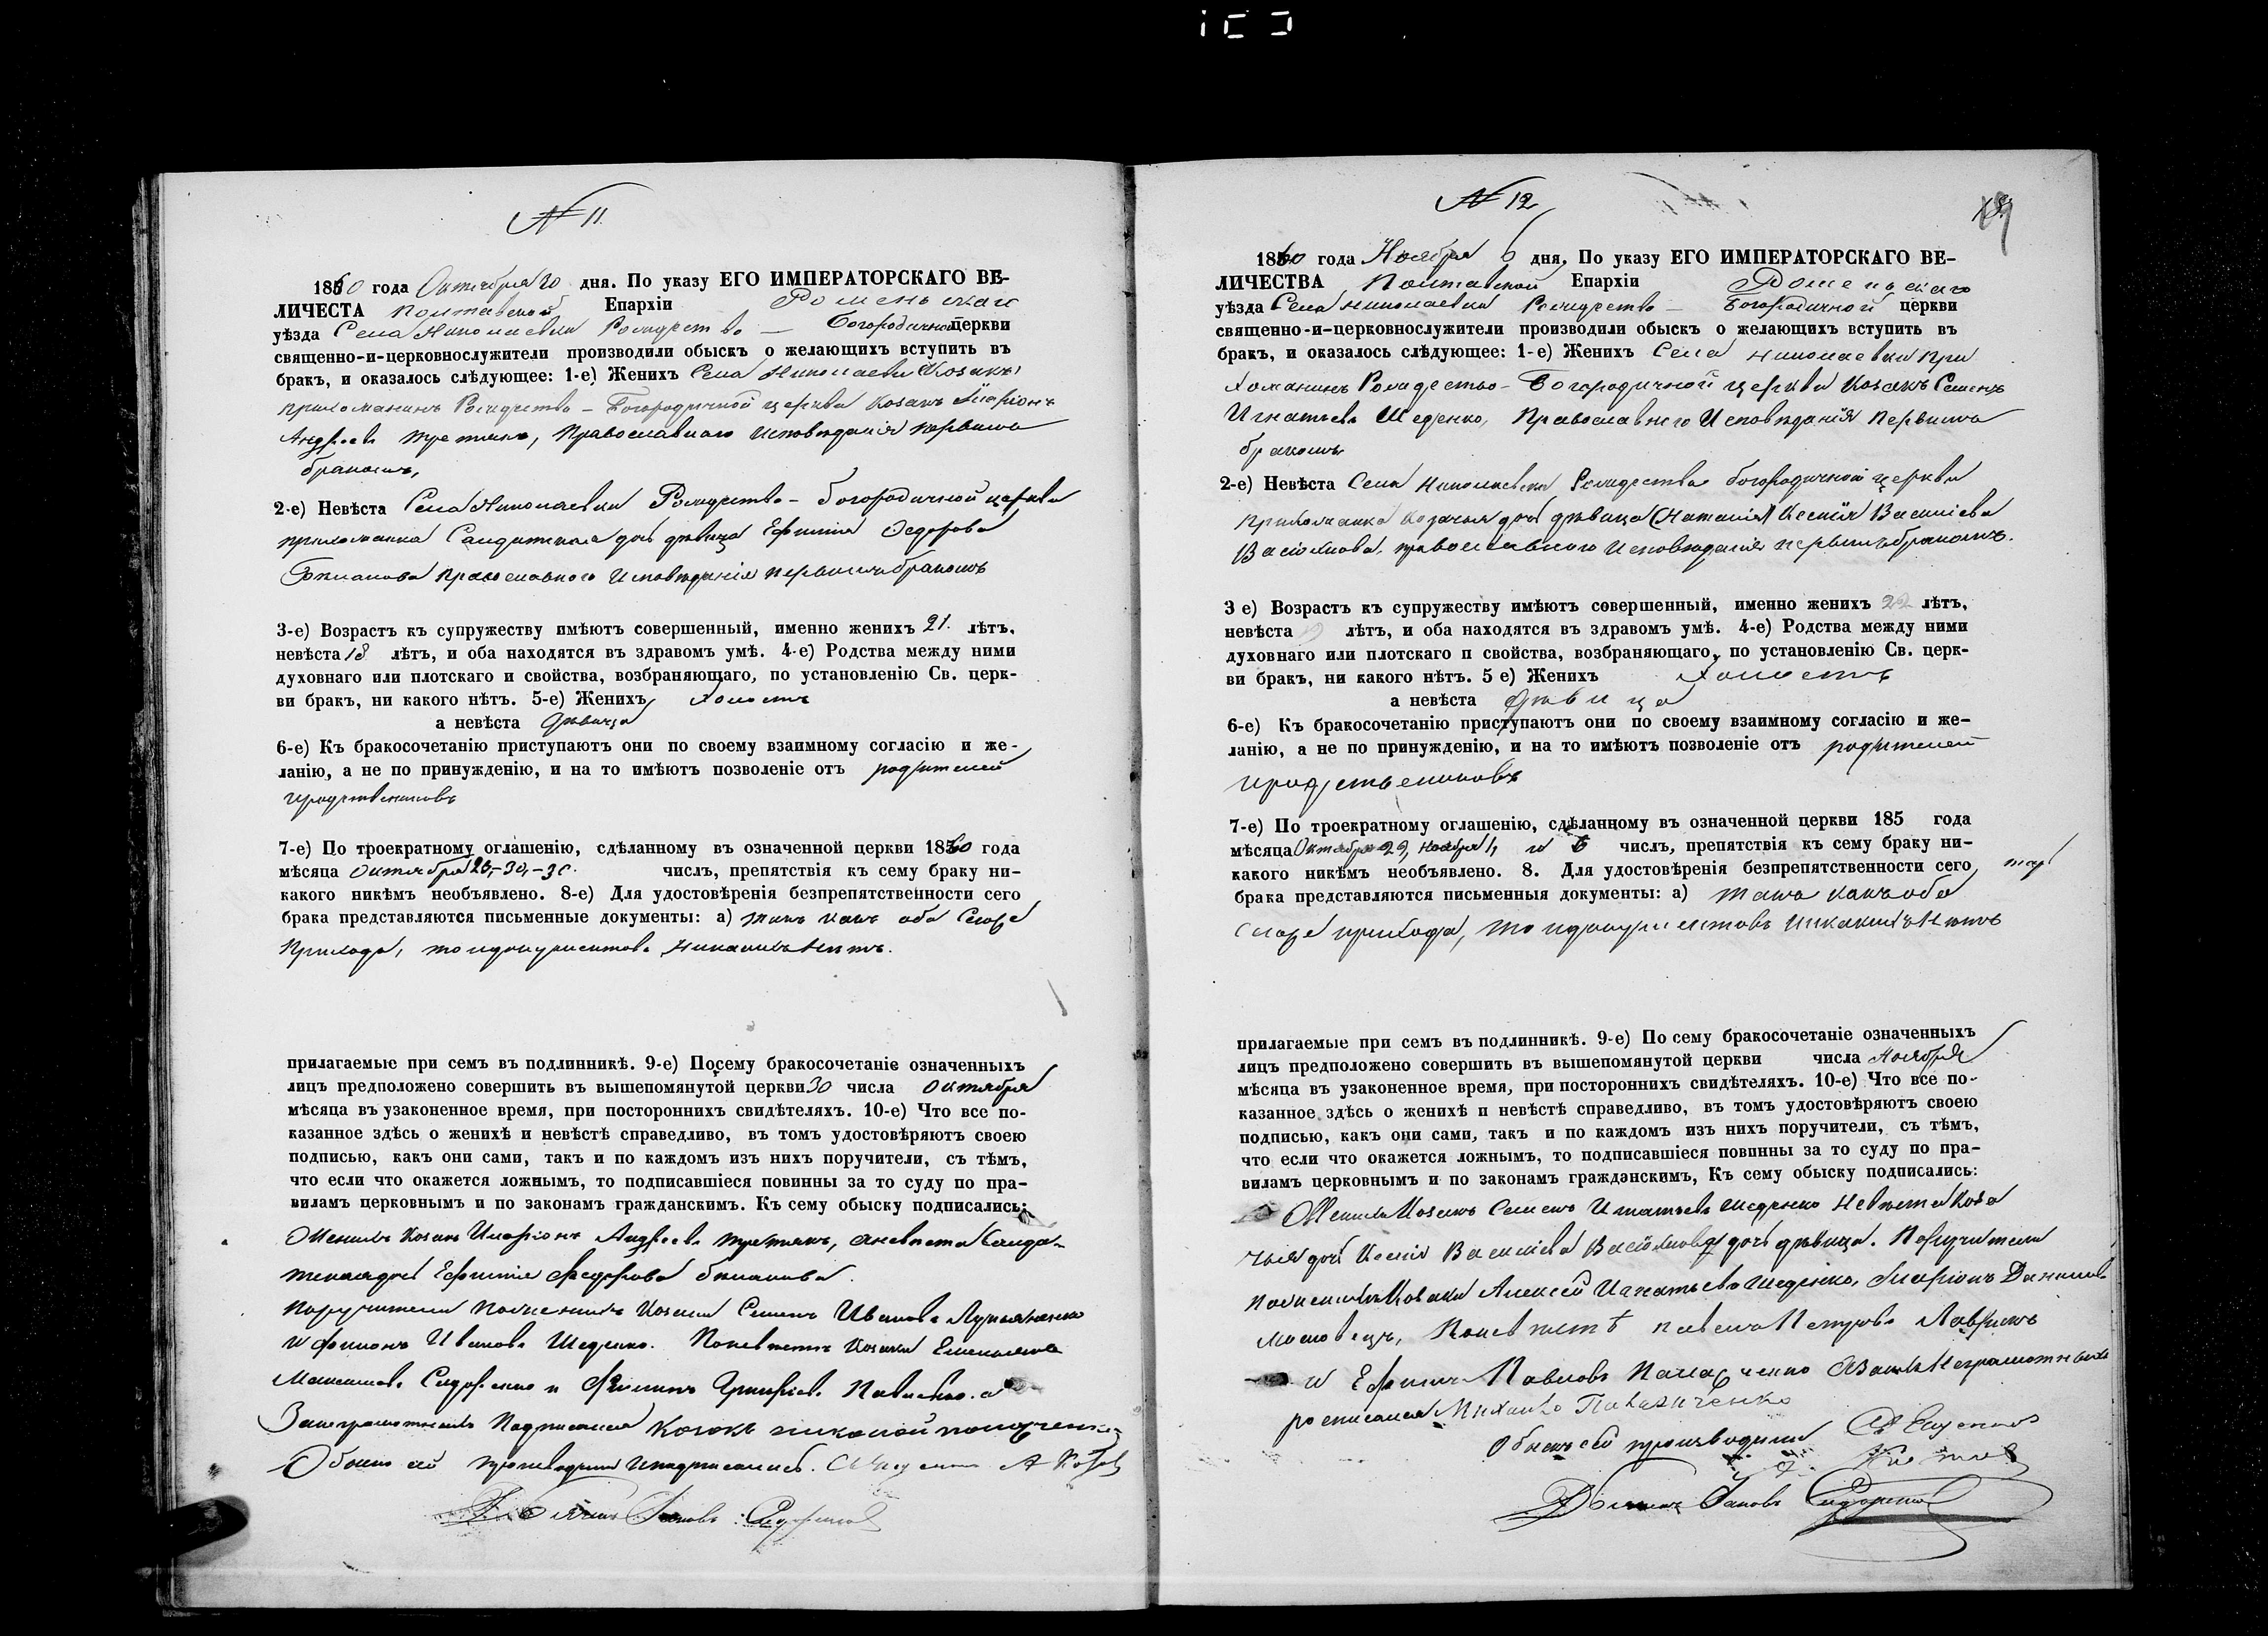 N 11.
1860 года Октября 30 дня. По указу ЕГО ИМПЕРАТОРСКАГО ВЕ-
ЛИЧЕСТА Полтавской Епархіи Роменскаго
уѣзда Села Николаевки Рождество — Богородичной церкви
священно-и-церковнослужители производили обыскъ о желающихъ вступить въ
бракъ, и оказалось слѣдующее: 1-е) Женихъ Села Николаевки Козакъ,
прихожанинъ Рождество - Богородичной церкви козакъ Иларіонъ
Андреевъ Третякъ, Православнаго Исповѣданія первымъ
бракомъ,
2-е) Невѣста Села Николаевки Рождество - Богородичной церкви
прихожанка Салдатская дочь дѣвица Ефимія Федорова
Православного Исповѣданія первымъ бракомъ
3-е) Возрастъ къ супружеству имѣютъ совершенный, именно женихъ 21. лѣтъ,
невѣста 18 лѣтъ, и оба находятся въ здравомъ умѣ. 4-е) Родства между ними
духовнаго или плотскаго и свойства, возбраняющаго, по установленію Св. церк-
ви бракъ, ни какого нѣтъ. 5-е) Женихъ холостъ
а невѣста дѣвица
6-е) Къ бракосочетанію приступаютъ они по своему взаимному согласію и же-
ланію, а не по принужденію, и на то имѣютъ позволеніе отъ родителей
иродственниковъ
7-е) По троекратному оглашенію, сдѣланному въ означенной церкви 1860 года
мѣсяца Октября числъ, препятствія къ сему браку ни-
какого никѣмъ необъявлено. 8-е) Для удостовѣренія безпрепятственности сего
брака представляются письменные документы: а) такъ какъ оба Сего
Прихода, то идокументовъ Никакихъ Нѣтъ.
прилагаемые при семъ въ подлинникѣ. 9-е) Посему бракосочетаніе означенныхъ
лицъ предположено совершить въ вышепомянутой церкви 30 числа Октября
мѣсяца въ узаконенное время, при постороннихъ свидѣтеляхъ. 10-е) Что все по-
казанное здѣсь о женихѣ и невѣстѣ справедливо, въ томъ удостовѣряютъ своею
подписью, какъ они сами, такъ и по каждомъ изъ нихъ поручители, съ тѣмъ,
что если что окажется ложнымъ, то подписавшіеся повинны за то суду по пра-
виламъ церковнымъ и по законамъ гражданскимъ. Къ сему обыску подписались:
Женихъ Козакъ Иларіонъ Андреевъ Третякъ, аневѣста Салда-
тская дочь Ефимія Федорова
Поручители Поженихѣ Козаки Семенъ Ивановъ Лукьяненко
и Филимонъ Ивановъ Шеденко. Поневѣстѣ Козаки Емельянъ
Сидоренко и
Занеграмотныхъ Подписался Козакъ
Обыскъ сей производили иподписались.
Яковъ Сидоренковъ
N 12
1860 года Ноября 6 дня. По указу ЕГО ИМПЕРАТОРСКАГО ВЕ-
ЛИЧЕСТВА Полтавской Епархіи Роменскаго
уѣзда Села Николаевки Рождество — Богородичной церкви
священно-и-церковнослужители производили обыскъ о желающихъ вступить въ
бракъ, и оказалось слѣдующее: 1-е) Женихъ Села Николаевки При
хожанинъ Рождество - Богородичной церкви Козакъ Семенъ
Игнатьевъ Шеденко, Православнаго Исповѣданія Первымъ
бракомъ
2-е) Невѣста Села Николаевки Рождество богородичной церкви
Прихожанка козачья дочь дѣвица (Наталія) Ксенія Василіева
православного Исповѣданія первымъ бракомъ.
3 е) Возрастъ къ супружеству имѣютъ совершенный, именно женихъ 22 лѣтъ,
невѣста лѣтъ, и оба находятся въ здравомъ умѣ. 4-е) Родства между ними
духовнаго или плотскаго п свойства, возбраняющаго, по установленію Св. церк-
ви бракъ, ни какого нѣтъ. 5 е) Женихъ холостъ
а невѣста дѣвица
6-е) Къ бракосочетанію приступаютъ они по своему взаимному согласію и же-
ланію, а не по принужденію, и на то имѣютъ позволеніе отъ родителей
иродственниковъ
7-е) По троекратному оглашенію, сдѣланному въ означенной церкви 185 года
мѣсяца Октября 29, Ноября 1, и 6 числъ, препятствія къ сему браку ни-
какого никѣмъ необъявлено. 8. Для удостовѣренія безпрепятственности сего
брака представляются письменныя документы: а) такъ какъ оба
Сего прихода, то идокументовъ Никакихъ Нѣтъ
прилагаемые при семъ въ подлинникѣ. 9-е) По сему бракосочетаніе означенныхъ
лицъ предположено совершить въ вышепомянутой церкви числа Ноября
мѣсяца въ узаконенное время, при постороннихъ свидѣтеляхъ. 10-е) Что все по-
казанное здѣсь о женихѣ п невѣстѣ справедливо, въ томъ удостовѣряютъ своею
подписью, какъ они сами, такъ и по каждомъ изъ нихъ поручители, съ тѣмъ,
что если что окажется ложнымъ, то подписавшіеся повинны за то суду по пра-
виламъ церковнымъ и по законамъ гражданскимъ, Къ сему обыску подписались:
Женихъ Козакъ Семенъ Игнатьевъ Шеденко Невѣста Коза
чья дочь Ксенія Василіева дочь дѣвица. Поручители
Поженихѣ Козаки Алексей Игнатьевъ Шеденко, Иларіонъ Даниловъ
Поневѣстѣ Павелъ Петровъ Лаврикъ
и Ефимъ Павловъ Занеграмотныхъ
росписался Михаилъ
Обыскъ сей производили
Яковъ Сидоренковъ